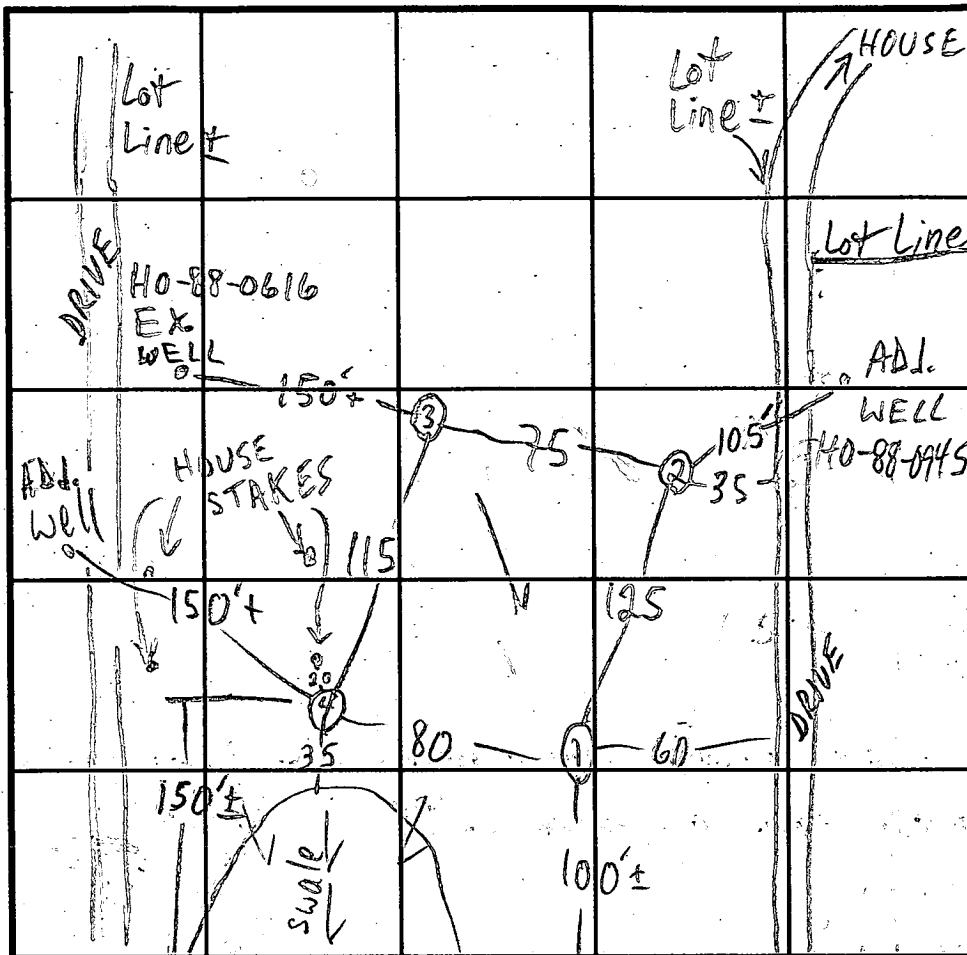 HOUSE
Lot
Line ±
Lot
Line ±
Lot Line
DRIVE
HO-88-0616
EX.
WELL
150'+
3
75
2
105'
35
ADD.
WELL
HO-88-0945
ADD.
Well
HOUSE
STAKES
115
150'+
125
20
4
35
80
1
60
DRIVE
150'±
swale
100'±